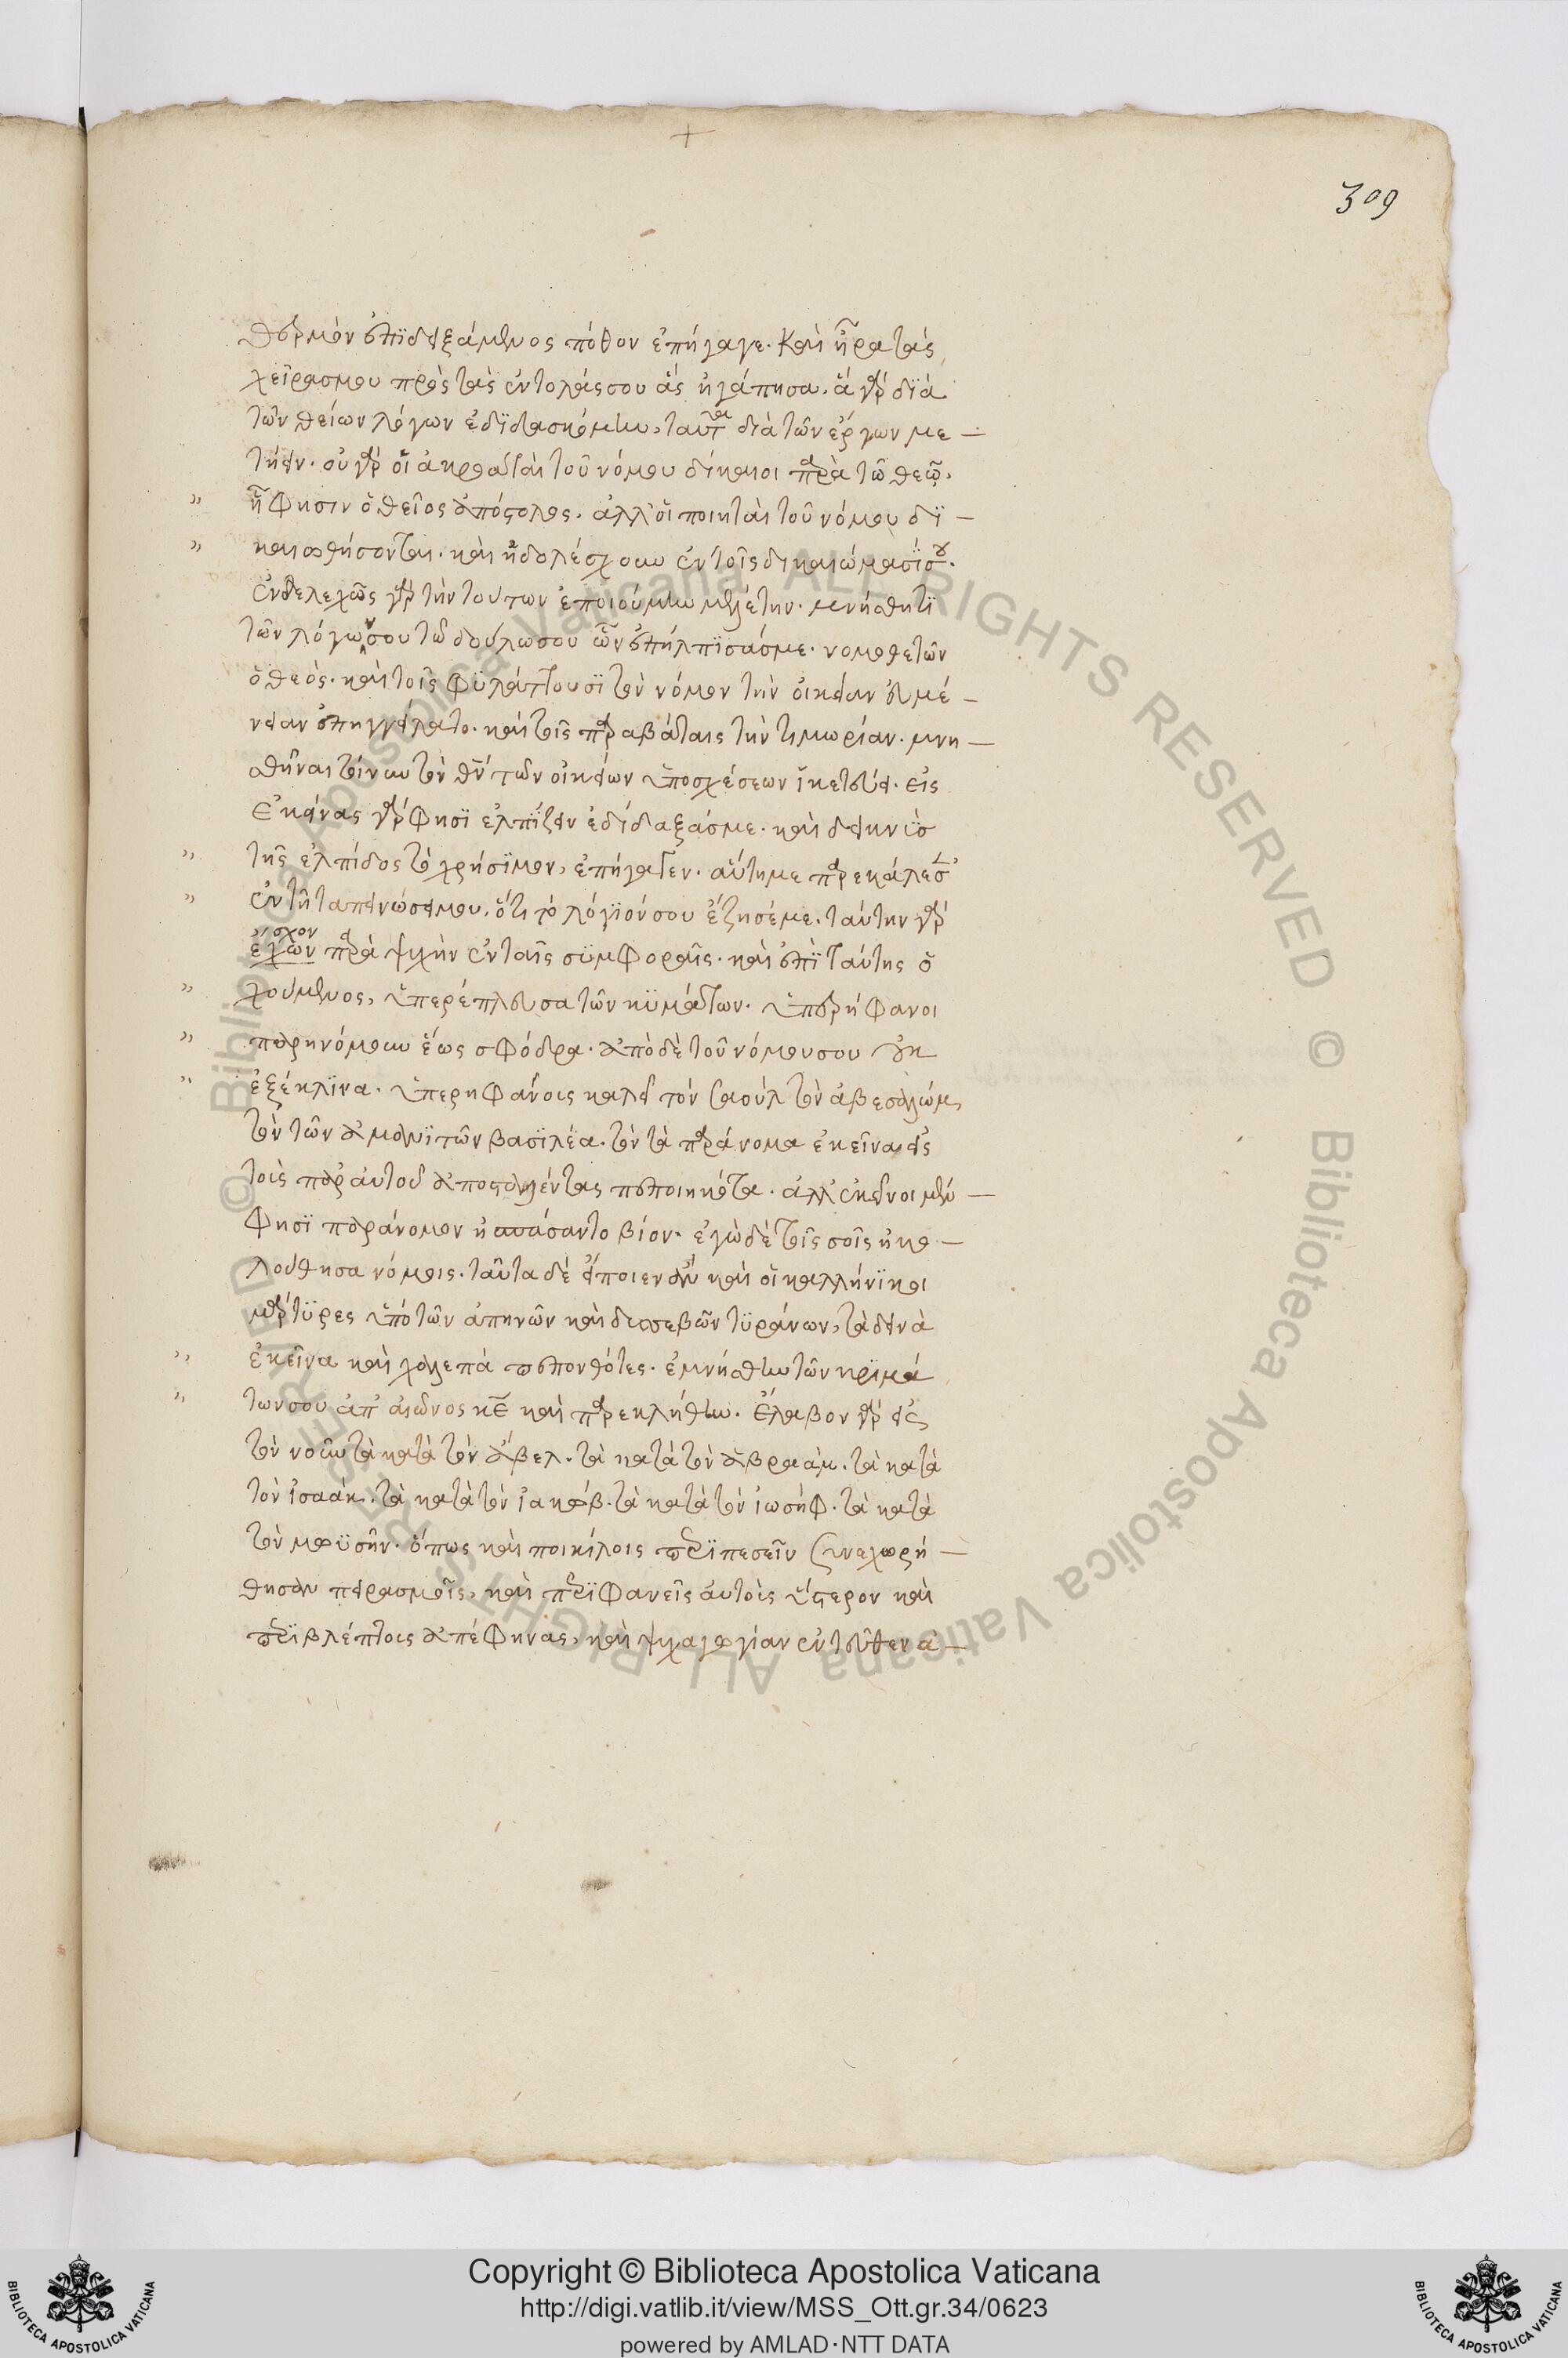 309
θερμὸν ἐπϊδειξάμενος πόθον ἐπήγαγε. Καὶ ἦρα τὰς
χεῖρασμου πρὸς τὰς ἐντολάςσου ἃς ἠγάπησα. ἃ γὰρ δϊὰ
τῶν θείων λόγων ἐδϊδασκόμην, ταῦτα διὰ τῶν ἔργων με —
τήειν. οὐ γὰρ οἱ ἀκροαταὶ τοῦ νόμου δίκαιοι παρὰ τῶ θεῶ.
ἧ φησιν ὁ θεῖος ἀπόστολος. ἀλλ' οἱ ποιηταὶ τοῦ νόμου δϊ —
καιωθήσονται. καὶ ἠδολέσχουν ἐν τοῖς δικαιώμασίσου.
ἐνδελεχῶς γὰρ τὴν τούτων ἐποιούμην μελέτην. μνήσθητϊ
τῶν λόγωνσου τῶ δούλωσου ὧν ἐπήλπϊσάσμε. νομοθετῶν
ὁ θεὸς. καὶ τοῖς φϋλάττουσϊ τὸν νόμον τὴν οἰκείαν εὐμέ —
νειαν ἐπηγγείλατο. καὶ τοῖς παραβάταις τὴν τιμωρίαν. μνη —
σθῆναι τοίνυν τὸν θν τῶν οἰκείων ὑποσχέσεων ἱκετεύει. εἰς
ἐκείνας γάρ φησϊ ἐλπΐζειν ἐδίδαξάσμε. καὶ δεικνὺς
τῆς ἐλπίδος τὸ χρήσϊμον, ἐπήγαγεν. αὕτημε παρεκάλεσεν
ἐν τῆ ταπεινώσειμου, ὅτι τὸ λόγϊόνσου ἔζησέμε. ταύτην γὰρ
ἔσχον
ἐχων παρὰ ψυχὴν ἐν ταῖς σϋμφοραῖς. καὶ ἐπὶ ταύτης ὀ
χούμενος, ὑπερέπλευσα τῶν κϋμάτων. ὑπερήφανοι
παρηνόμουν ἕως σφόδρα. ἀπὸ δὲ τοῦ νόμουσου οὐκ
ἐξέκλϊνα. ὑπερηφάνοις καλεῖ τὸν σαοὺλ τὸν ἀβεσαλώμ,
τὸν τῶν ἀμανϊτῶν βασϊλέα. τὸν τὰ παράνομα ἐκεῖνα εἰς
τοὺς παρ' αὐτοῦ ἀποσταλέντας πεποιηκότα. ἀλλ' ἐκεῖνοι μέν —
φησϊ παράνομον ἠσπάσαντο βίον. ἐγὼ δὲ τοῖς σοῖς ἠκο —
λούθησα νόμοις. ταῦτα δὲ εἴποιεν ἂν καὶ οἱ καλλήνϊκοι
μάρτϋρες ὑπὸ τῶν ἀπηνῶν καὶ δυσσεβῶν τϋράνων, τὰ δεινὰ
ἐκεῖνα καὶ χαλεπὰ πεπονθότες. ἐμνήσθην τῶν κρϊμά
τωνσου ἀπ' αἰῶνος κε καὶ παρεκλήθην. ἔλαβον γὰρ εἰς
τὸν νοῦν τὰ κατὰ τὸν ἄβελ. τὰ κατὰ τὸν ἀβραάμ. τὰ κατὰ
τὸν ἰσαάκ. τὰ κατὰ τὸν ἰακώβ. τὰ κατὰ τὸν ἰωσήφ. τὰ κατὰ
τὸν μωϋσῆν. ὅπως καὶ ποικίλοις περϊπεσεῖν συνεχωρή —
θησαν πειρασμοῖς, καὶ περϊφανεῖς αὐτοὺς ὕστερον καὶ
περϊβλέπτοις ἀπέφηνας, καὶ ψυχαγωγίαν ἐντεῦθεν ἀ —
Copyright © Biblioteca Apostolica Vaticana
http://digi.vatlib.it/view/MSS_Ott.gr.34/0623
powered by AMLAD·NTT DATA
BIBLIOTECA APOSTOLICA VATICANA
BIBLIOTECA APOSTOLICA VATICANA
© Biblioteca Apostolica Vaticana ALL RIGHTS RESERVED
© Biblioteca Apostolica Vaticana ALL RIGHTS RESERVED